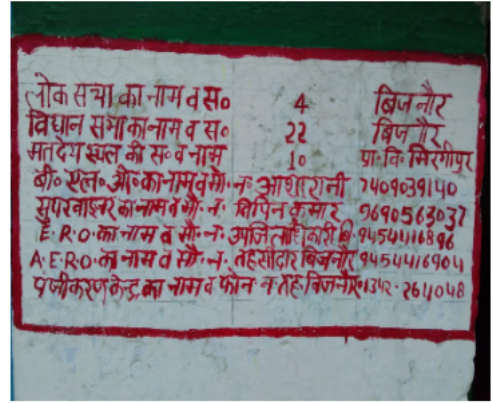 लोक सभा का नाम व स० 4 बिजनौर
विधान सभा का नाम व स० 22 बिजनौर
मतदेय स्थल की स० व नाम 10 प्रा॰ वि॰ मिरगीपुर
बी॰ एल॰ ओ॰ का नाम व मो॰ न॰ आशा रानी 7409039140
सुपरवाइजर का नाम व मो॰ न॰ विपिन कुमार 9690563037
E.R.O. का नाम व मो॰ न॰ उपजिलाधिकारी बि॰ 9454416896
A.E.R.O. का नाम व मो॰ न॰ तहसीलदार बिजनौर 9454416904
पंजीकरण केन्द्र का नाम व फोन न॰ तह॰ बिजनौर॰ 1342-264048